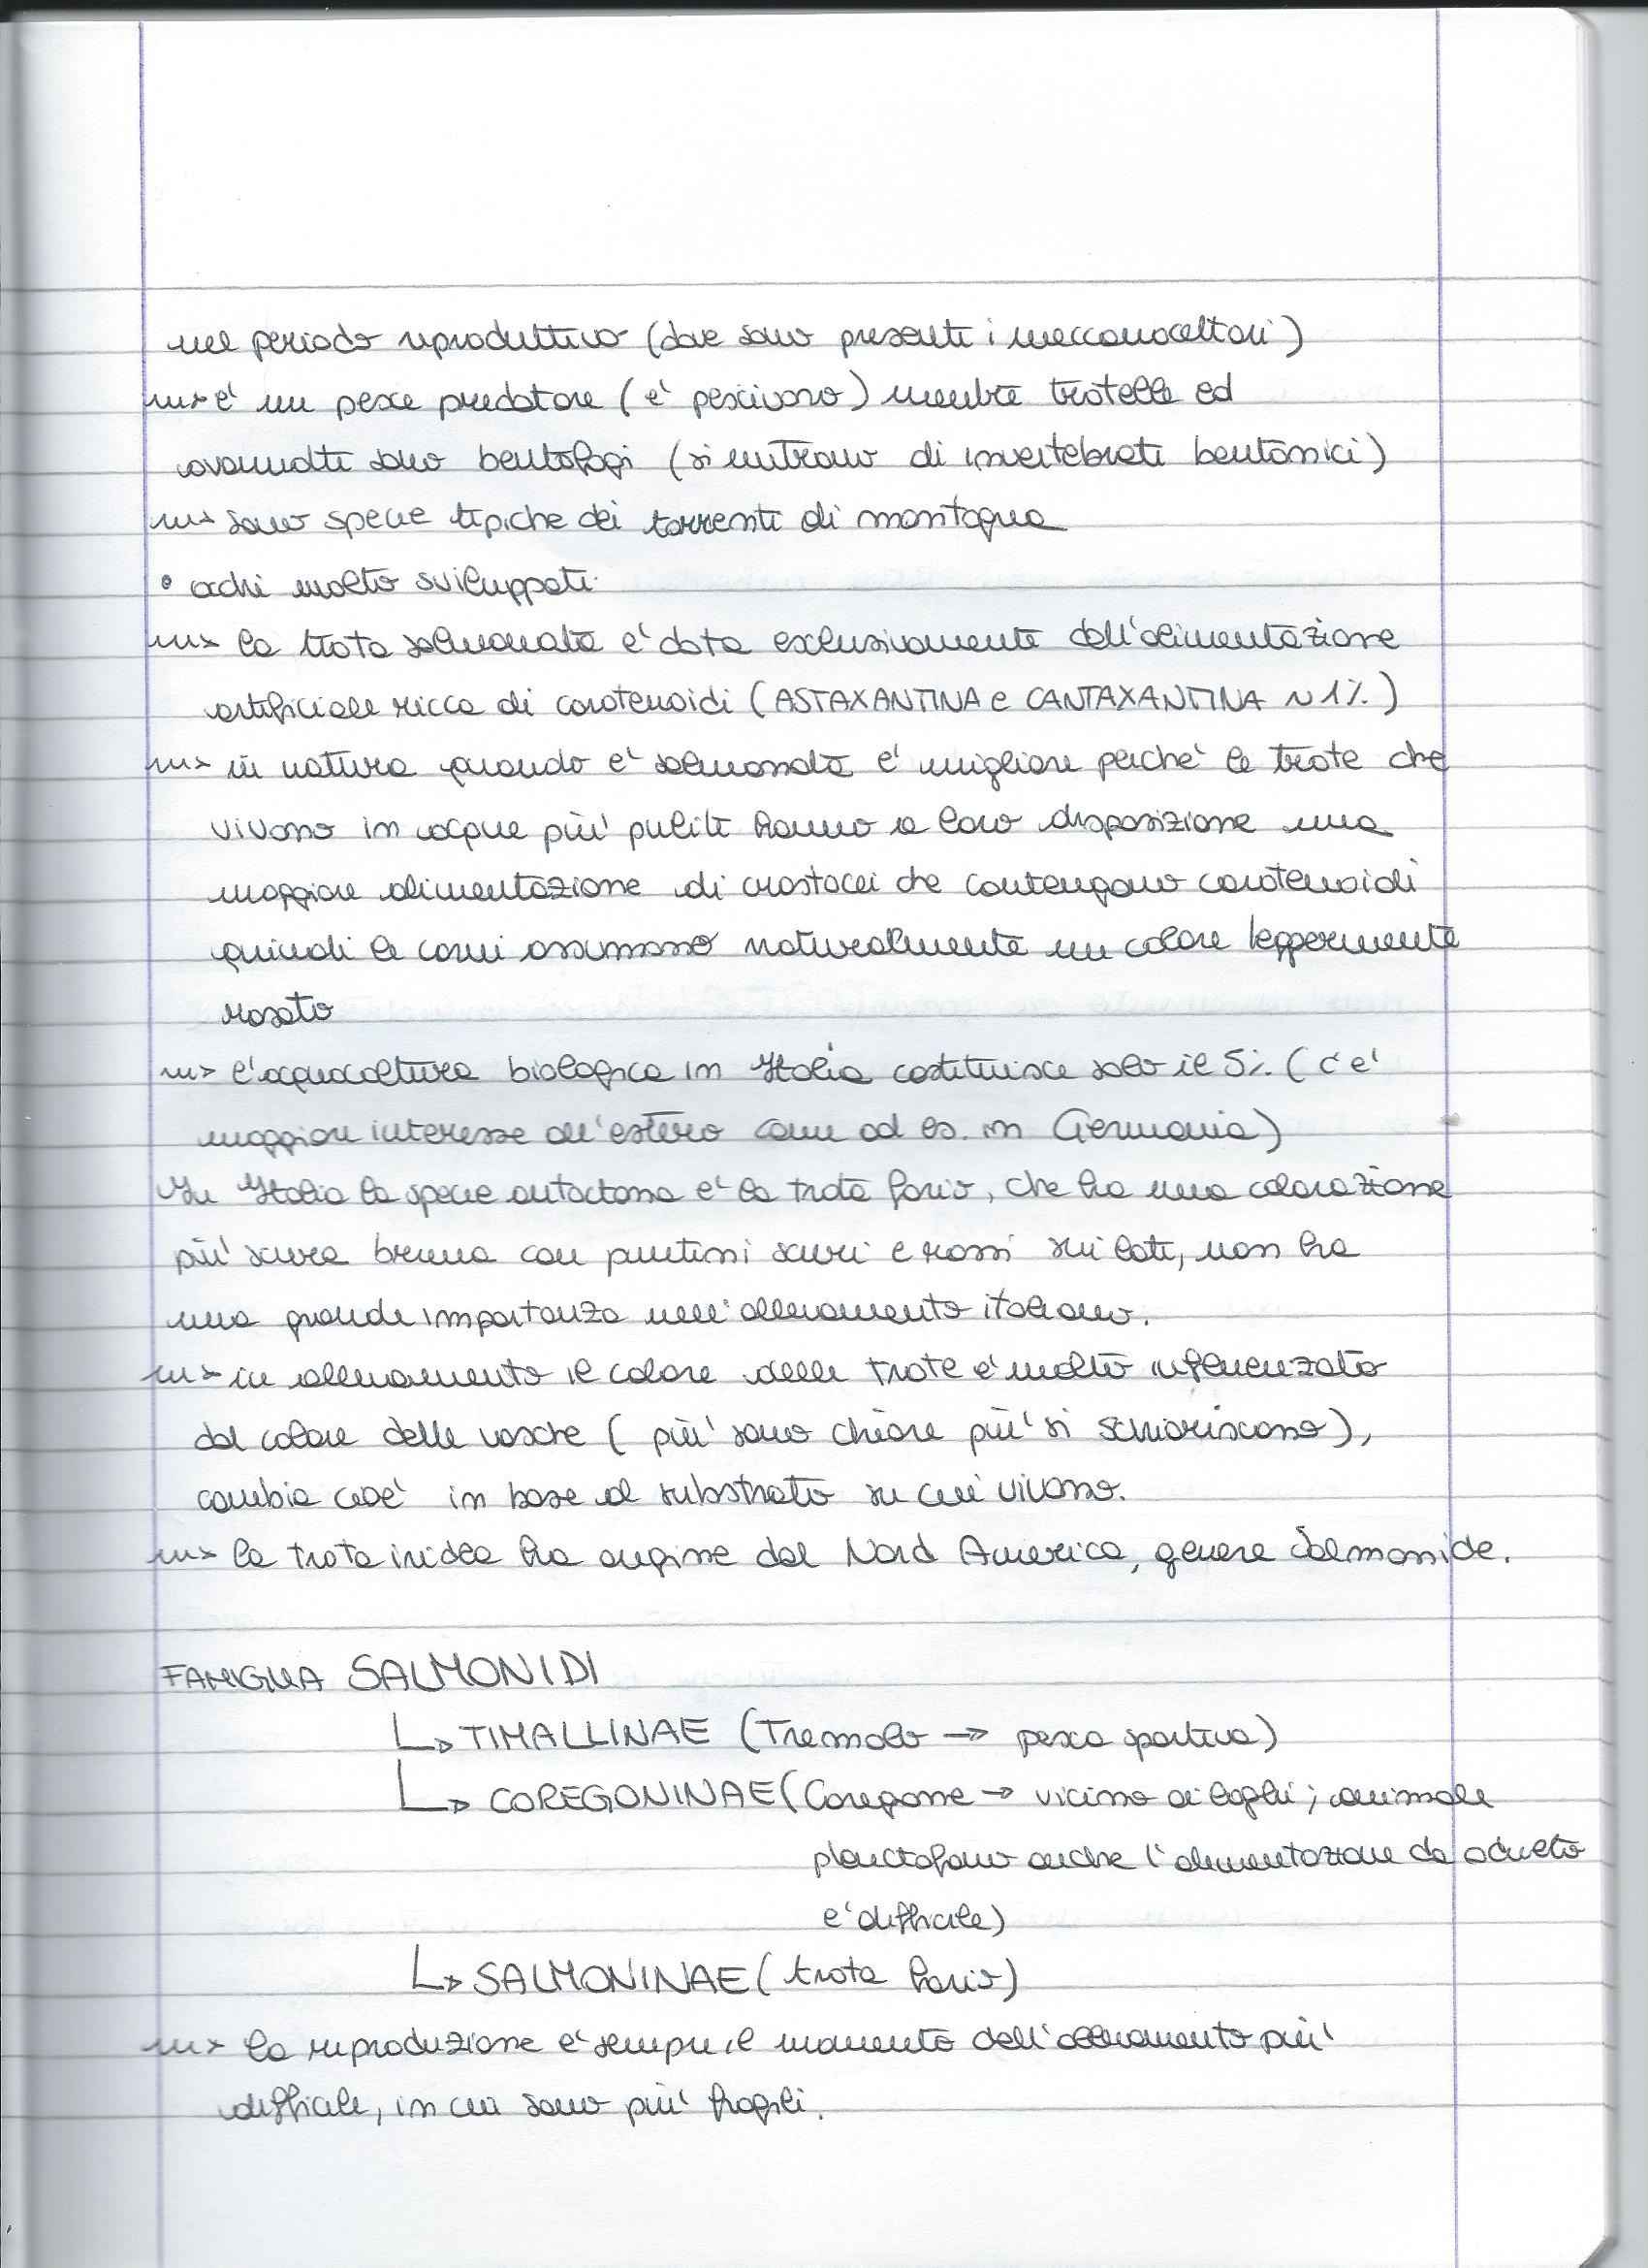 nel periodo riproduttivo (dove sono presenti i meccanocettori)
~> e' un pesce predatore (e' pescivoro) mentre trotelle ed
avannotti sono bentofagi (si nutrono di invertebrati bentonici)
~> sono specie tipiche dei torrenti di montagna
• occhi molto sviluppati.
~> la trota salmonata e' data exclusivamente dall'alimentazione
artificiale ricca di carotenoidi (ASTAXANTINA e CANTAXANTINA ~1%)
~> in natura quando e' salmonata e' migliore perche' le trote che
vivono in acque piu' pulite hanno a loro disposizione una
maggiore alimentazione di crostacei che contengono carotenoidi
quindi le carni assumono naturalmente un colore leggermente
rosato
~> l'acquacoltura biologica in Italia costituisce solo il 5% (c'e'
maggiore interesse all'estero come ad es. in Germania)
In Italia la specie autoctona e' la trota fario, che ha una colorazione
piu' scura bruna con puntini scuri e rossi sui lati, non ha
una grande importanza nell'allevamento italiano.
~> in allevamento il colore delle trote e' molto influenzato
dal colore delle vasche (piu' sono chiare piu' si schiariscono),
cambia cioe' in base al substrato su cui vivono.
~> la trota iridea ha origine dal Nord America, genere Salmonide.
FAMIGLIA SALMONIDI
↳ TIMALLINAE (Tremolo → pesca sportiva)
↳ COREGONINAE (Coregone → vicino ai laghi; animale
planctofano anche l'alimentazione da adulto
e' difficile)
↳ SALMONINAE (trota fario)
~> la riproduzione e' sempre il momento dell'allevamento piu'
difficile, in cui sono piu' fragili.